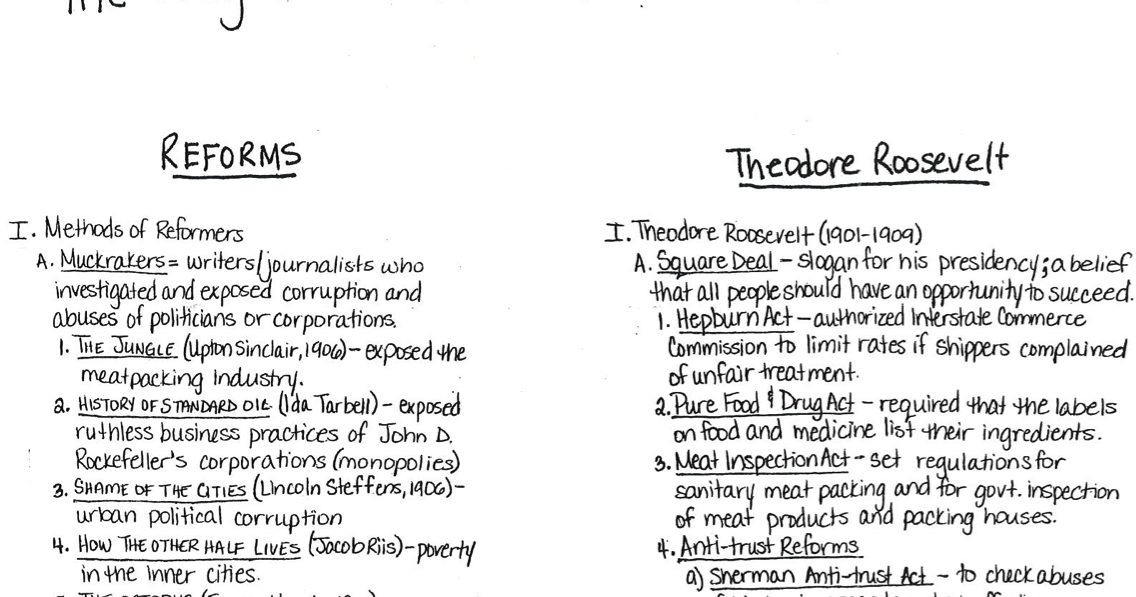 The
REFORMS
I. Methods of Reformers
A. Muckrakers = writers/journalists who
investigated and exposed corruption and
abuses of politicians or corporations.
1. THE JUNGLE (Upton Sinclair, 1906) - exposed the
meatpacking industry.
2. HISTORY OF STANDARD OIL (Ida Tarbell) - exposed
ruthless business practices of John D.
Rockefeller's corporations (monopolies)
3. SHAME OF THE CITIES (Lincoln Steffens, 1906) -
urban political corruption
4. HOW THE OTHER HALF LIVES (Jacob Riis) - poverty
in the inner cities.
Theodore Roosevelt
I. Theodore Roosevelt (1901-1909)
A. Square Deal - slogan for his presidency; a belief
that all people should have an opportunity to succeed.
1. Hepburn Act - authorized Interstate Commerce
Commission to limit rates if shippers complained
of unfair treatment.
2. Pure Food & Drug Act - required that the labels
on food and medicine list their ingredients.
3. Meat Inspection Act - set regulations for
sanitary meat packing and for govt. inspection
of meat products and packing houses.
4. Anti-trust Reforms
a) Sherman Anti-trust Act - to check abuses